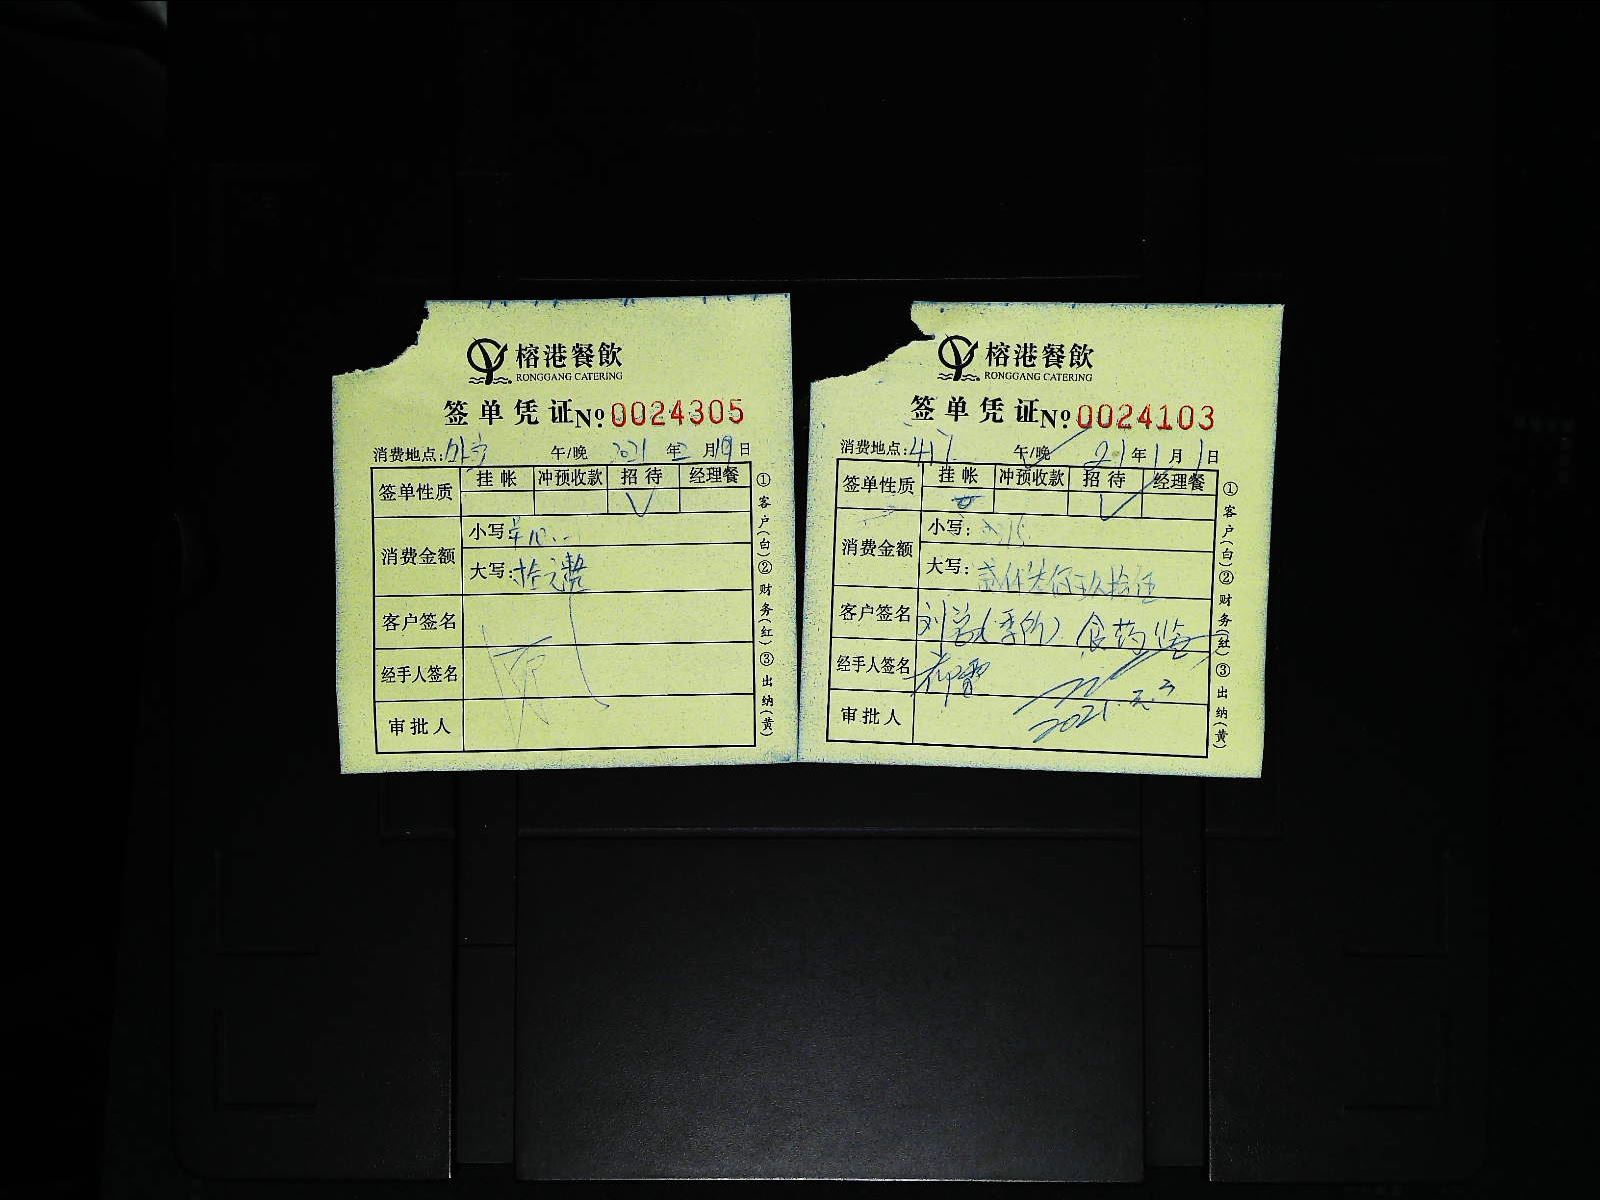 榕港餐飲
RONGGANG CATERING
签单凭证 No 0024305
消费地点: 午/晚 2021年2月19日
签单性质 挂帐 冲预收款 招待 经理餐
消费金额
小写:
大写:拾元整
客户签名
经手人签名
审批人
①客户(白)②财务(红)③出纳(黄)
榕港餐飲
RONGGANG CATERING
签单凭证 No 0024103
消费地点:417 午/晚 21年1月1日
签单性质 挂帐 冲预收款 招待 经理餐
消费金额
小写:
大写:
客户签名 食药监
经手人签名
2021.2.3
审批人
①客户(白)②财务(红)③出纳(黄)